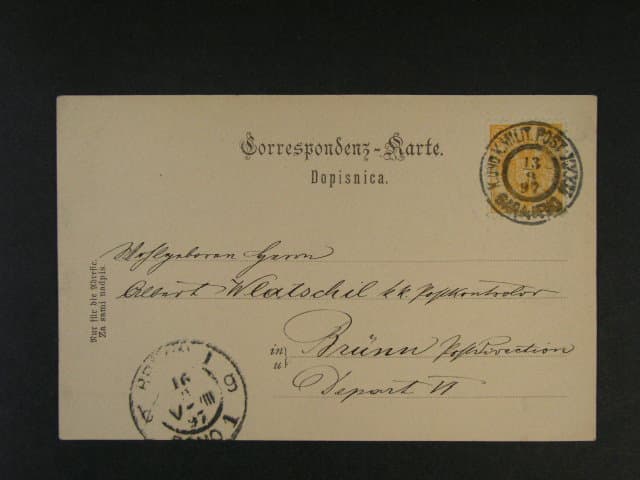 Correspondenz-Karte.
Dopisnica.
K. UND K. MILIT. POST XXXX
13
8
97
SARAJEVO
Nur für die Adresse.
Za sami nadpis.
Wohlgeboren Herrn
Albert Wlatschil k.k. Postkontrolor
in
u
Brünn Postdirection
Depart VI
16
8
97
1
BRNO